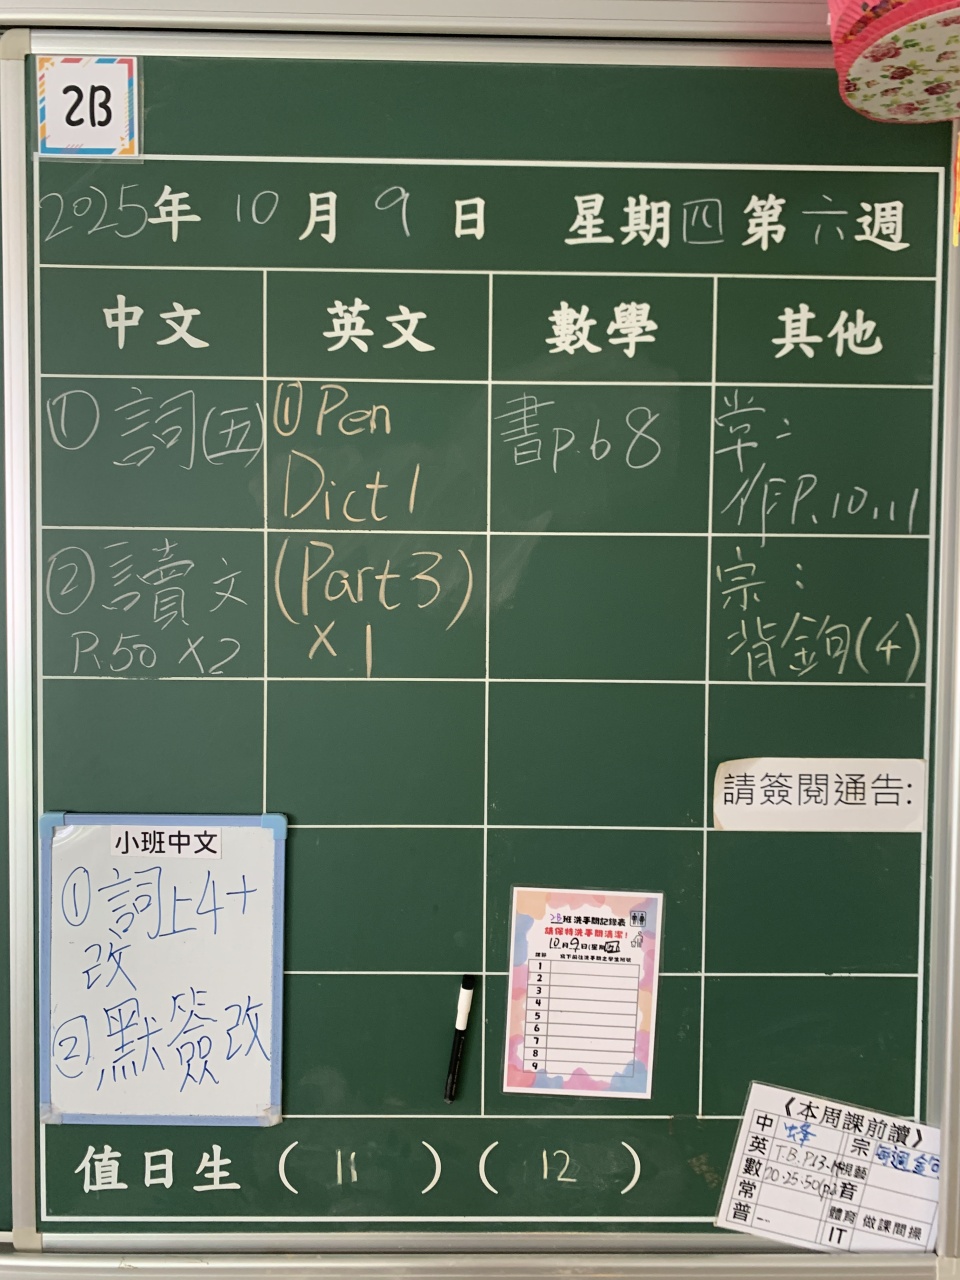 2B
2025年 10月 9日 星期四 第六週
中文 英文 數學 其他
① 詞(五)
② 讀文
P.50 x2
① Pen
Dict 1
(Part 3)
x 1
書p.68
常:
作P.10,11
宗:
背金句(4)
請簽閱通告:
小班中文
① 詞上4+
改
② 默簽改
2B班洗手間記錄表
請保持洗手間清潔!
10月9日(星期四)
1
2
3
4
5
6
7
8
9
值日生 ( 11 ) ( 12 )
《本周課前讀》
中 蜂
英 T.B. P.13-14
數 20·25·50
常
普 --
宗 每週金句
視藝
音
體育 做課間操
IT